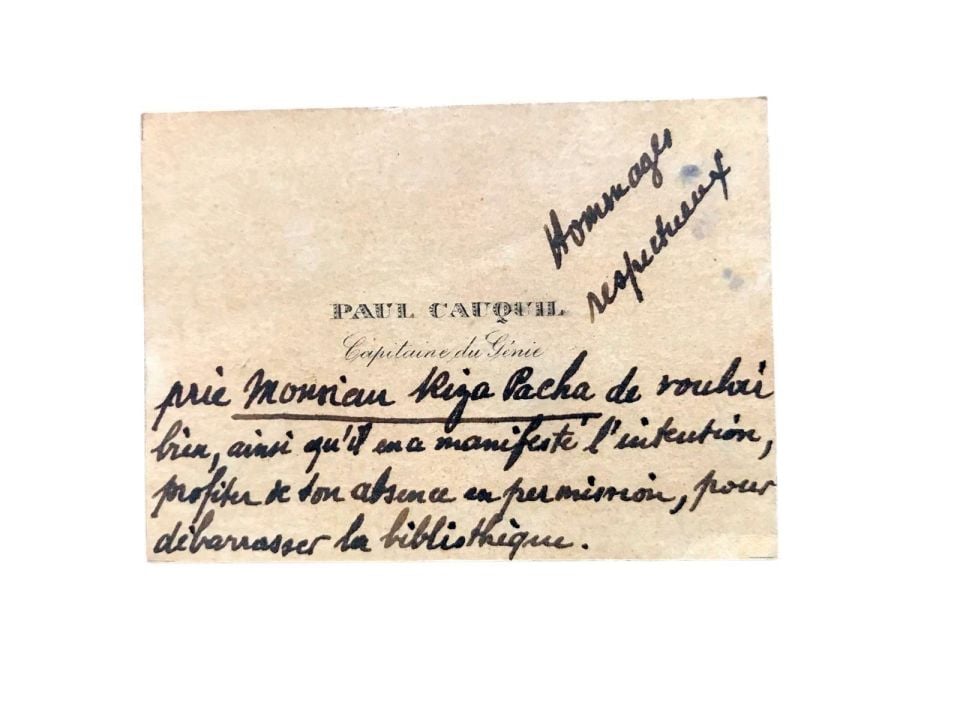 Hommages
respectueux
PAUL CAUQUIL
Capitaine du Génie
prie Monsieur Riza Pacha de vouloir
bien, ainsi qu'il en a manifesté l'intention,
profiter de son absence en permission, pour
débarrasser la bibliothèque.